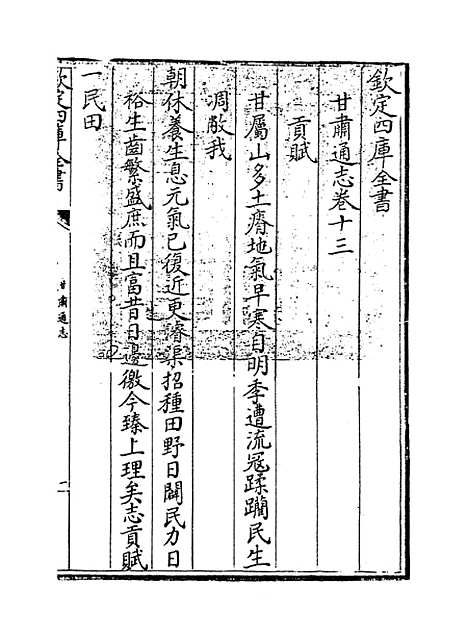 欽定四庫全書
甘肅通志卷十三
貢賦
甘屬山多土瘠地氣早寒自明季遭流冦蹂躪民生
凋敝我
朝休養生息元氣已復近更濬渠招種田野日闢民力日
裕生齒繁盛庶而且富昔日邊徼今臻上理矣志貢賦
一民田
欽定四庫全書
甘肅通志